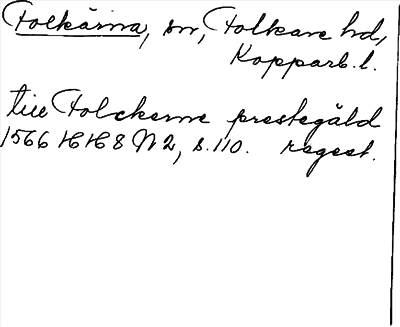 Folkärna, sn, Folkare hd,
Kopparb. l.
tiie Folckerne prestegäld
1566 HH 8 N 2, s. 110. regest.